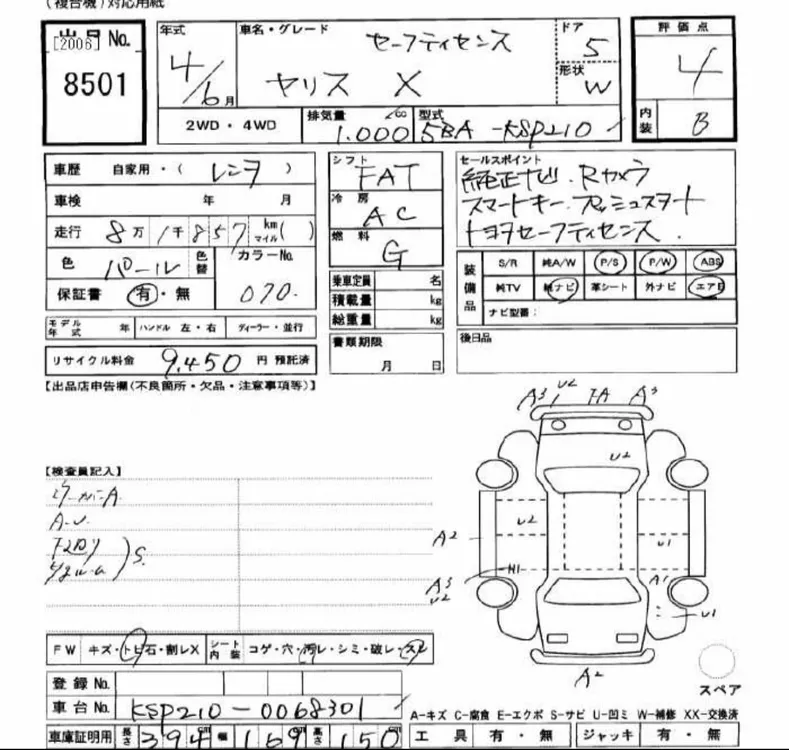 (複合機)対応用紙
出品 No.
[2006]
8501
年式
4/6月
車名・グレード
セーフティセンス
ヤリス X
ドア
5
形状
W
評価点
4
内装
B
2WD・4WD
排気量
1.000
型式
5BA-KSP210
車歴 自家用・( レンタ )
車検 年 月
走行 8万1千857 km マイル( )
色 パール 色替
カラーNo.
070.
保証書 有・無
シフト
FAT
冷房
AC
燃料
G
乗車定員 名
積載量 kg
総重量 kg
書類期限
月 日
セールスポイント
純正ナビ.Rカメラ
スマートキー.プッシュスタート
トヨタセーフティセンス.
装備品
S/R 純A/W P/S P/W ABS
純TV 純ナビ 革シート 外ナビ エアB
ナビ型番:
後日品
モデル年式 年 ハンドル 左・右 ディーラー・並行
リサイクル料金 9,450 円 預託済
【出品店申告欄(不良箇所・欠品・注意事項等)】
【検査員記入】
A-U
S.
A3 U2 A3
U2
U2
A2 U1
A3 U2 A1
U1
A2
スペア
FW キズ・トビ石・割レX シート内装 コゲ・穴・汚レ・シミ・破レ・スレ
登録 No.
車台 No. KSP210-0068301
A-キズ C-腐食 E-エクボ S-サビ U-凹ミ W-補修 XX-交換済
車庫証明用 長さ 394 cm 幅 169 cm 高さ 150 cm
工具 有・無 ジャッキ 有・無